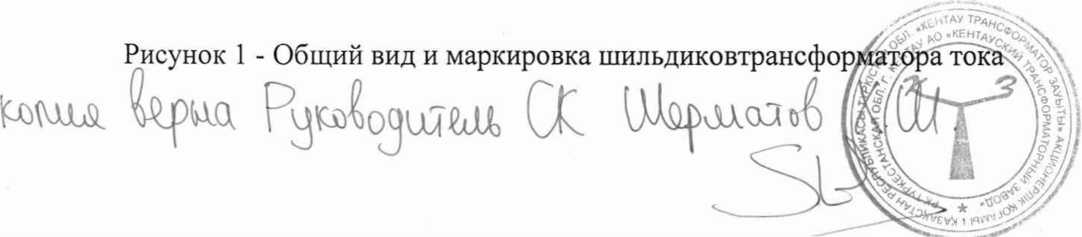 Рисунок 1 - Общий вид и маркировка шильдиковтрансформатора тока
копия верна Руководитель СК Шерматов Ш.
«КЕНТАУ ТРАНСФОРМАТОР ЗАУЫТЫ» АКЦИОНЕРЛІК ҚОҒАМЫ
ҚАЗАҚСТАН РЕСПУБЛИКАСЫ ТҮРКІСТАН ОБЛ.
РК ТУРКЕСТАНСКАЯ ОБЛ. Г. КЕНТАУ АО «КЕНТАУСКИЙ ТРАНСФОРМАТОРНЫЙ ЗАВОД»